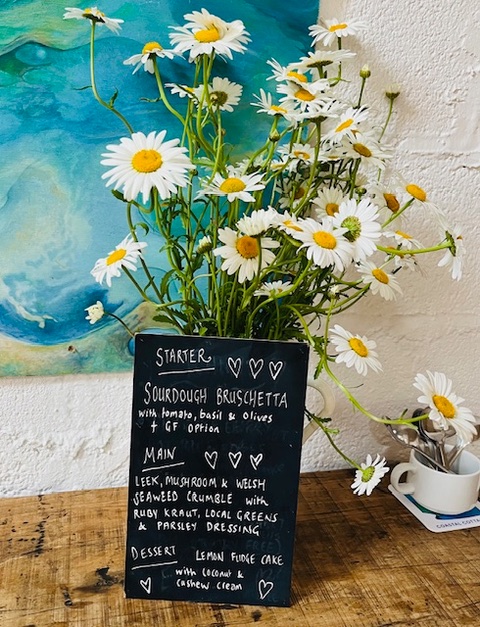 STARTER
SOURDOUGH BRUSCHETTA
with tomato, basil & olives
+ GF option
MAIN
LEEK, MUSHROOM & WELSH
SEAWEED CRUMBLE with
RUBY KRAUT, LOCAL GREENS
& PARSLEY DRESSING
DESSERT LEMON FUDGE CAKE
with coconut &
cashew cream
COASTAL